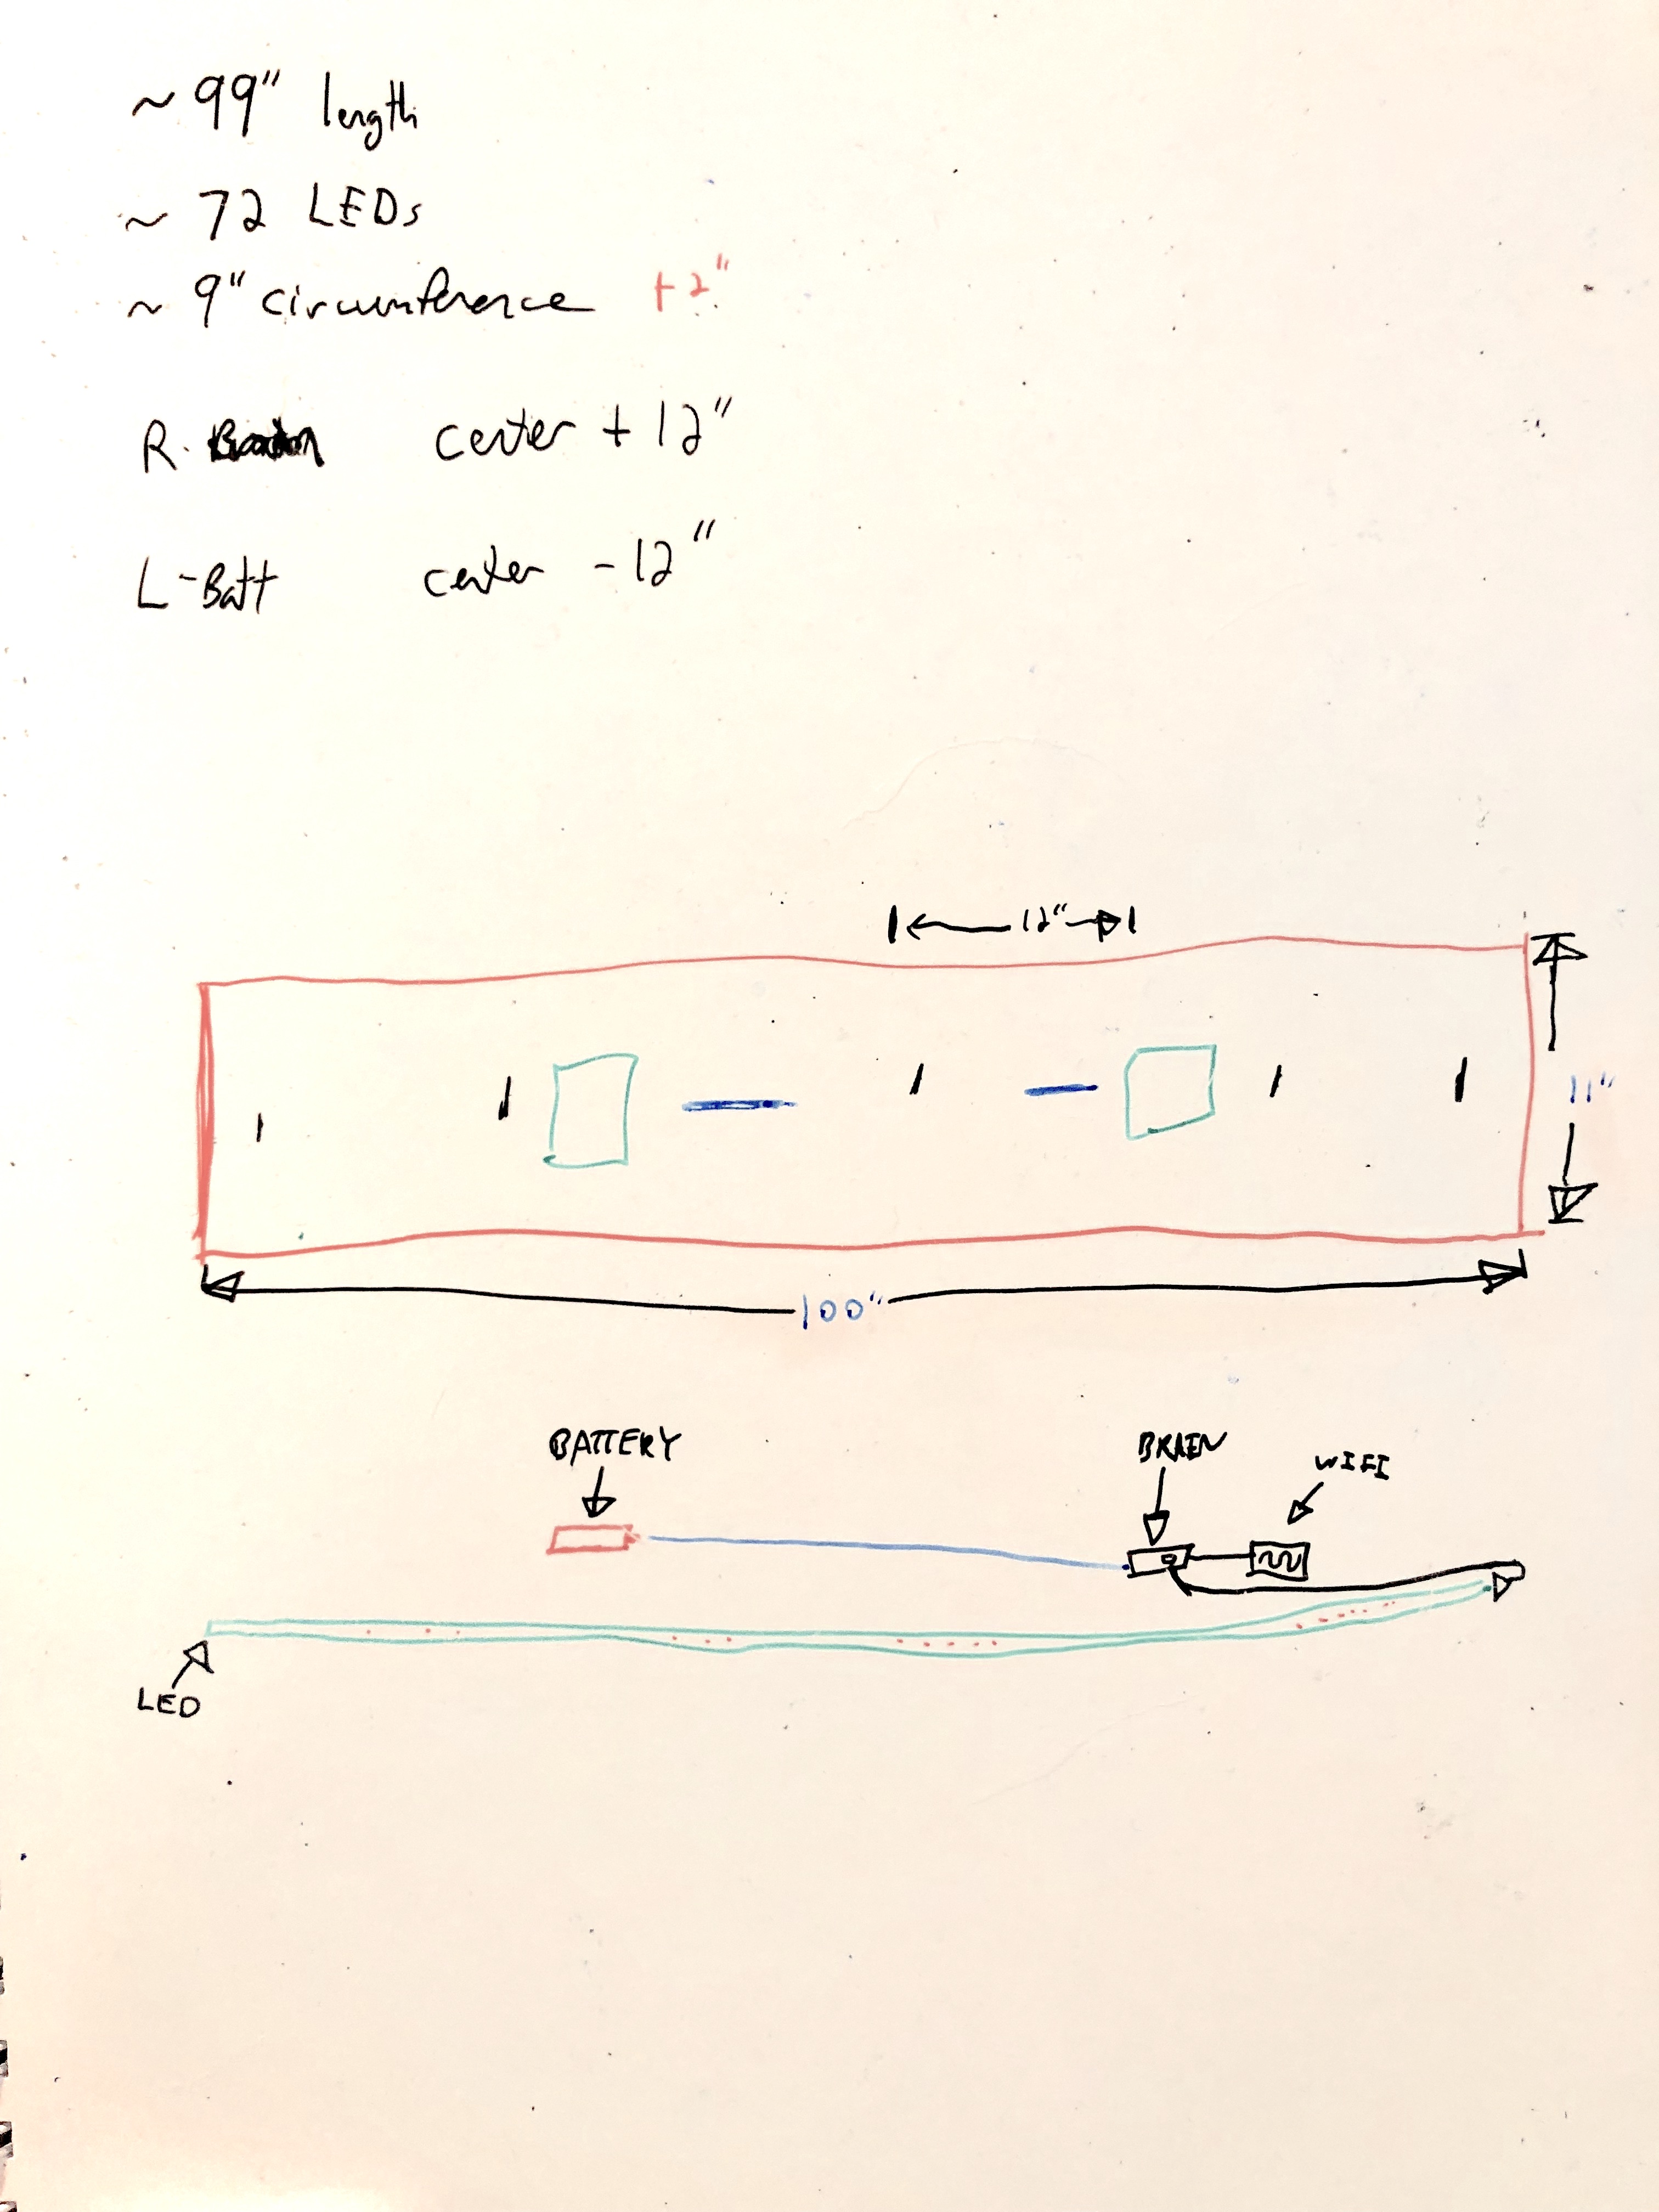 ~ 99" length
~ 72 LEDs
~ 9" circumference +2"
R. Brain center + 12"
L-Batt center - 12"
12"
11"
100"
BATTERY
BRAIN
WIFI
LED